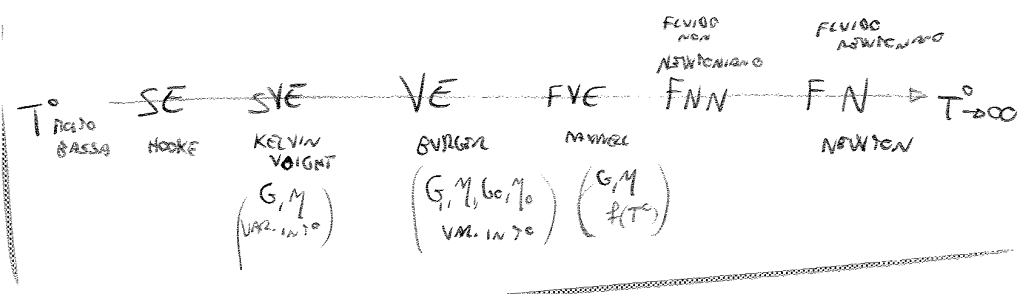 FLUIDO
NON
NEWTONIANO
FLUIDO
NEWTONIANO
T° MOLTO BASSA
SE
SVE
VE
FVE
FNN
FN
T°→∞
HOOKE
KELVIN
VOIGHT
BURGER
MAXWELL
NEWTON
(G, η
VAR. IN T°)
(G, η, G₀, η₀
VAR. IN T°)
(G, η
f(T°))